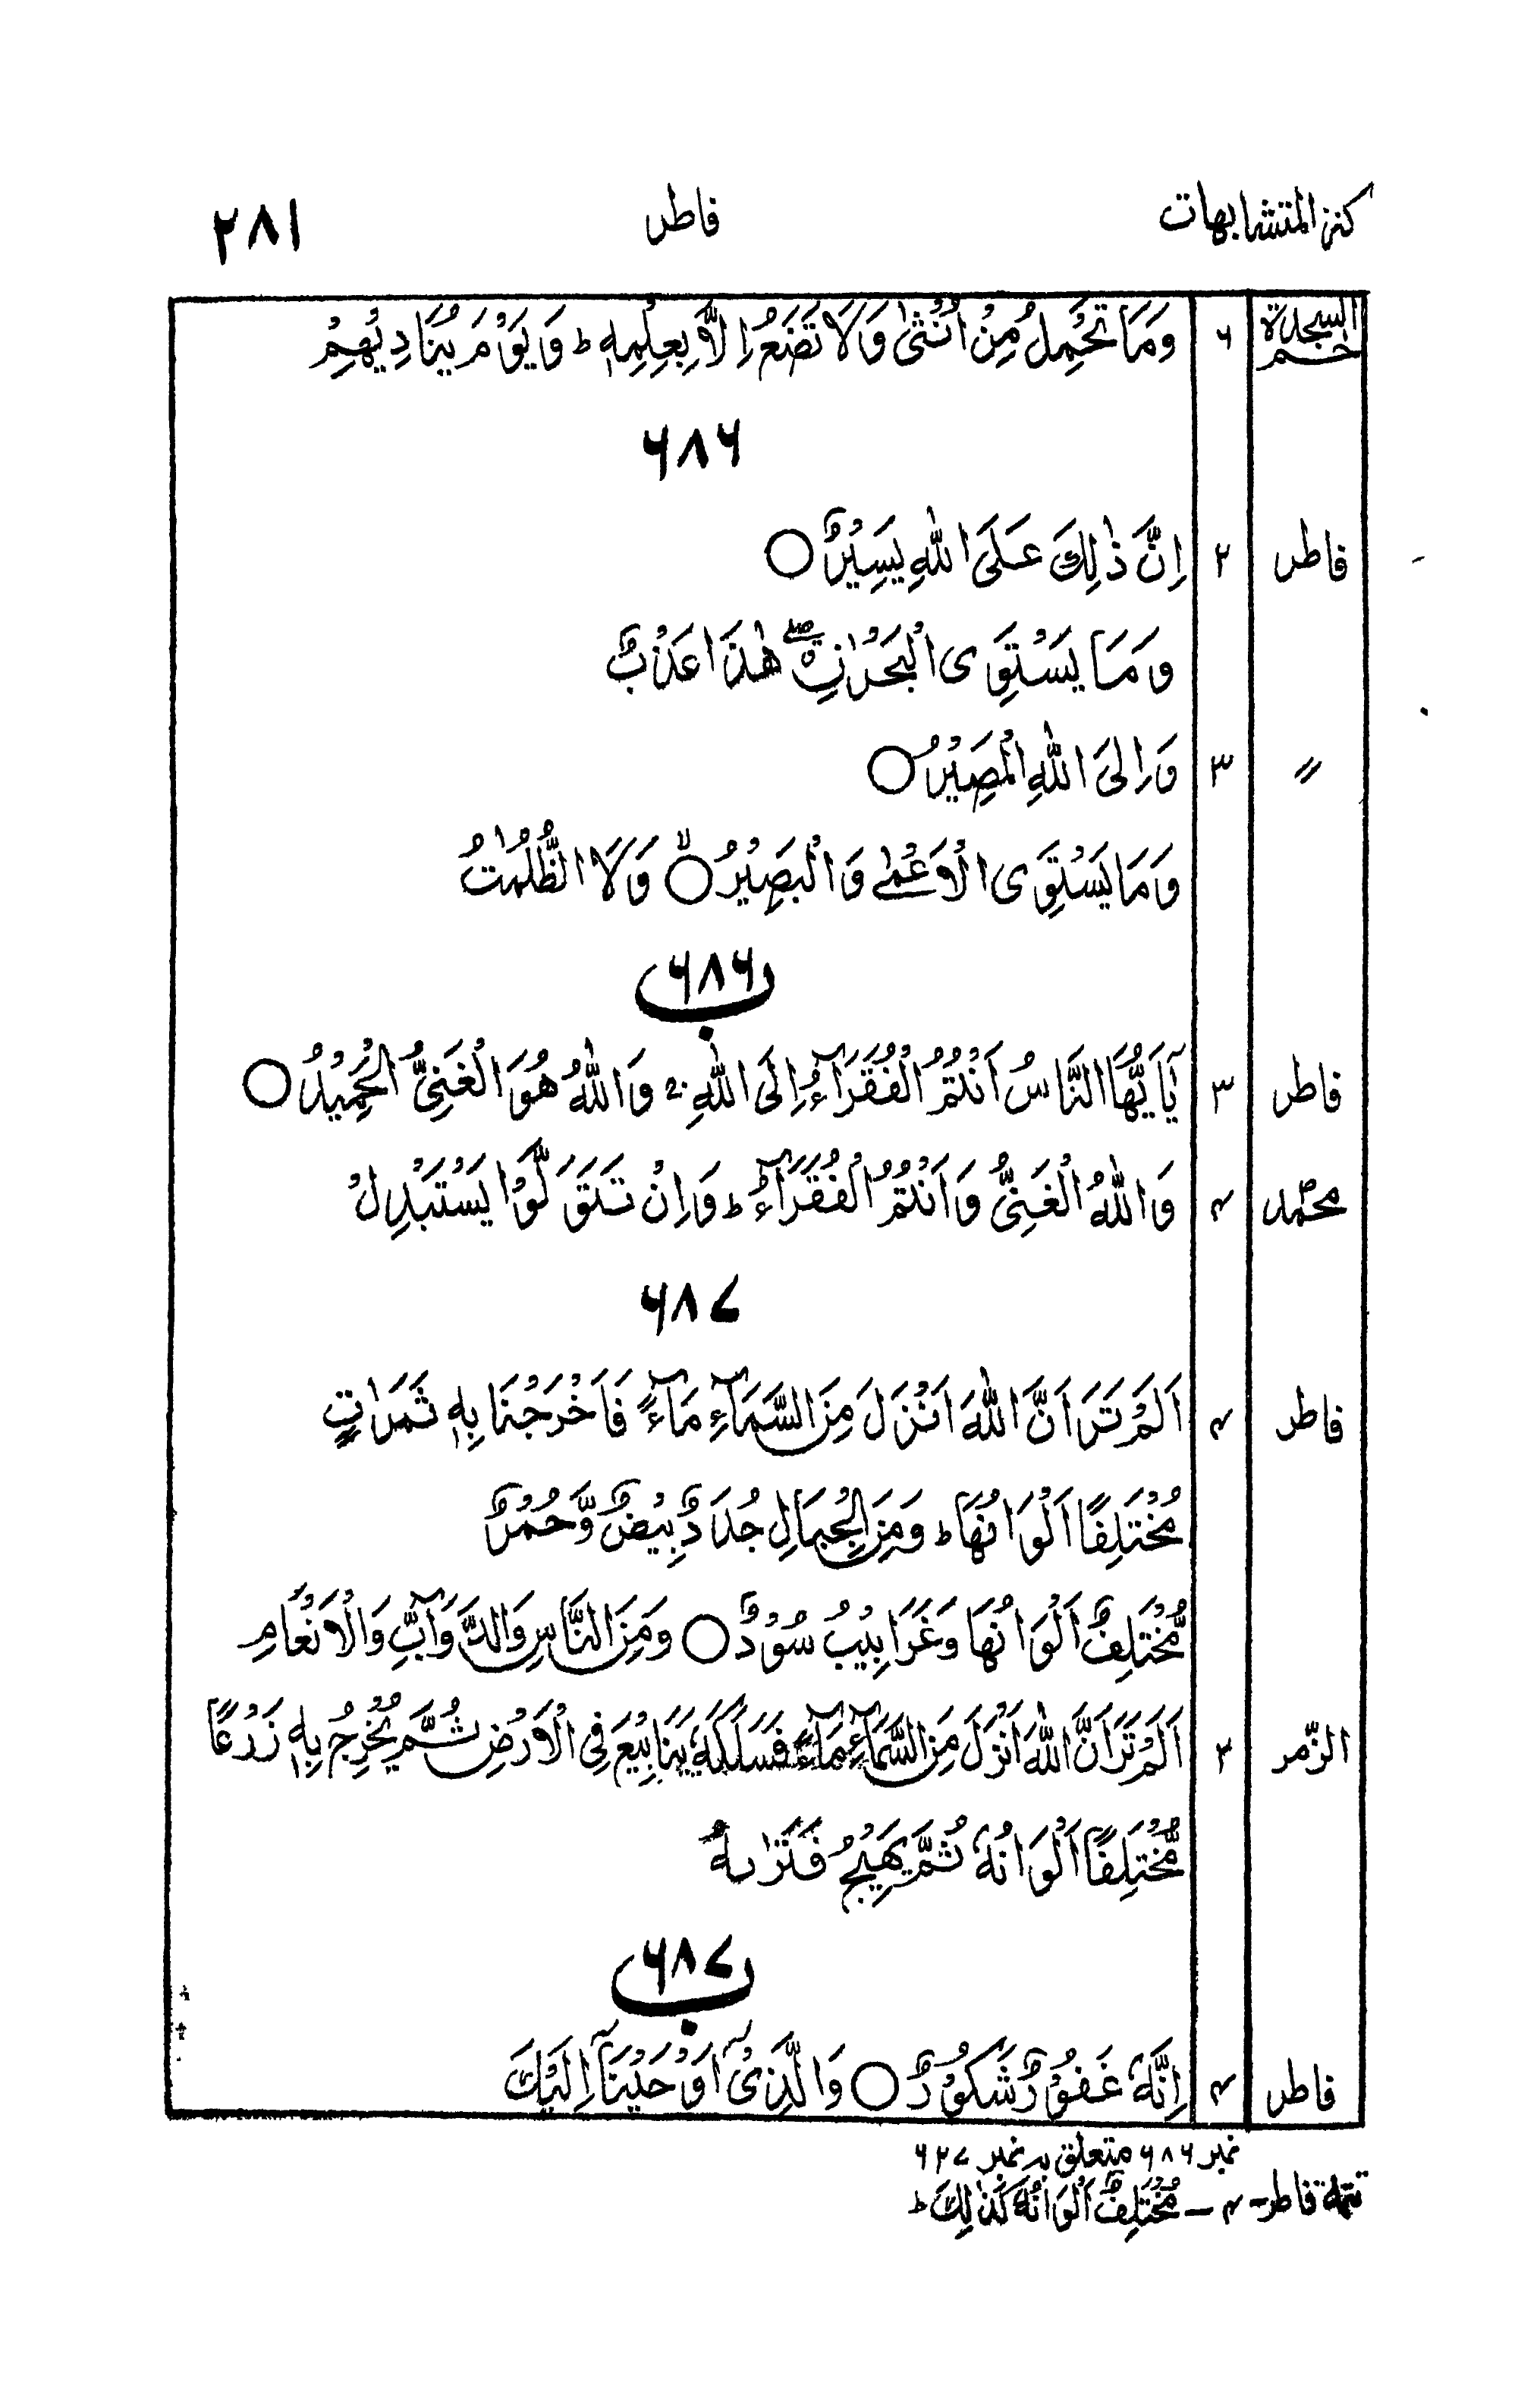 كنز المتشابهات فاطر ٢٨١
حٰم السجدة ۶ وَمَا تَحْمِلُ مِنْ اُنْثٰى وَلَا تَضَعُ اِلَّا بِعِلْمِهٖ ؕ وَيَوْمَ يُنَادِيْهِمْ
۶۸۶
فاطر ۲ اِنَّ ذٰلِكَ عَلَى اللّٰهِ يَسِيْرٌ ○
وَمَا يَسْتَوِى الْبَحْرٰنِ ۖ هٰذَا عَذْبٌ
〃 ۳ وَاِلَى اللّٰهِ الْمَصِيْرُ ○
وَمَا يَسْتَوِى الْاَعْمٰى وَالْبَصِيْرُ ○ۙ وَلَا الظُّلُمٰتُ
۶۸۶ ب
فاطر ۳ يٰٓاَيُّهَا النَّاسُ اَنْتُمُ الْفُقَرَآءُ اِلَى اللّٰهِ ۚ وَاللّٰهُ هُوَ الْغَنِىُّ الْحَمِيْدُ ○
محمّد ۴ وَاللّٰهُ الْغَنِىُّ وَاَنْتُمُ الْفُقَرَآءُ ؕ وَاِنْ تَتَوَلَّوْا يَسْتَبْدِلْ
۶۸۷
فاطر ۴ اَلَمْ تَرَ اَنَّ اللّٰهَ اَنْزَلَ مِنَ السَّمَآءِ مَآءً فَاَخْرَجْنَا بِهٖ ثَمَرٰتٍ
مُّخْتَلِفًا اَلْوَانُهَا ؕ وَمِنَ الْجِبَالِ جُدَدٌۢ بِيْضٌ وَّحُمْرٌ
مُّخْتَلِفٌ اَلْوَانُهَا وَغَرَابِيْبُ سُوْدٌ ○ وَمِنَ النَّاسِ وَالدَّوَآبِّ وَالْاَنْعَامِ
الزّمر ۲ اَلَمْ تَرَ اَنَّ اللّٰهَ اَنْزَلَ مِنَ السَّمَآءِ مَآءً فَسَلَكَهٗ يَنَابِيْعَ فِى الْاَرْضِ ثُمَّ يُخْرِجُ بِهٖ زَرْعًا
مُّخْتَلِفًا اَلْوَانُهٗ ثُمَّ يَهِيْجُ فَتَرٰىهُ
۶۸۷ ب
فاطر ۴ اِنَّهٗ غَفُوْرٌ شَكُوْرٌ ○ وَالَّذِىْٓ اَوْحَيْنَآ اِلَيْكَ
نمبر ۶۸۶ متعلق بہ نمبر ۶۲۷
تتمة فاطر - ۴ - مُخْتَلِفٌ اَلْوَانُهٗ كَذٰلِكَ ؕ